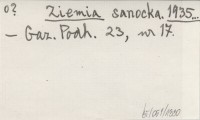 o? Ziemia sanocka. 1935...
– Gaz. Podh. 23, nr 17.